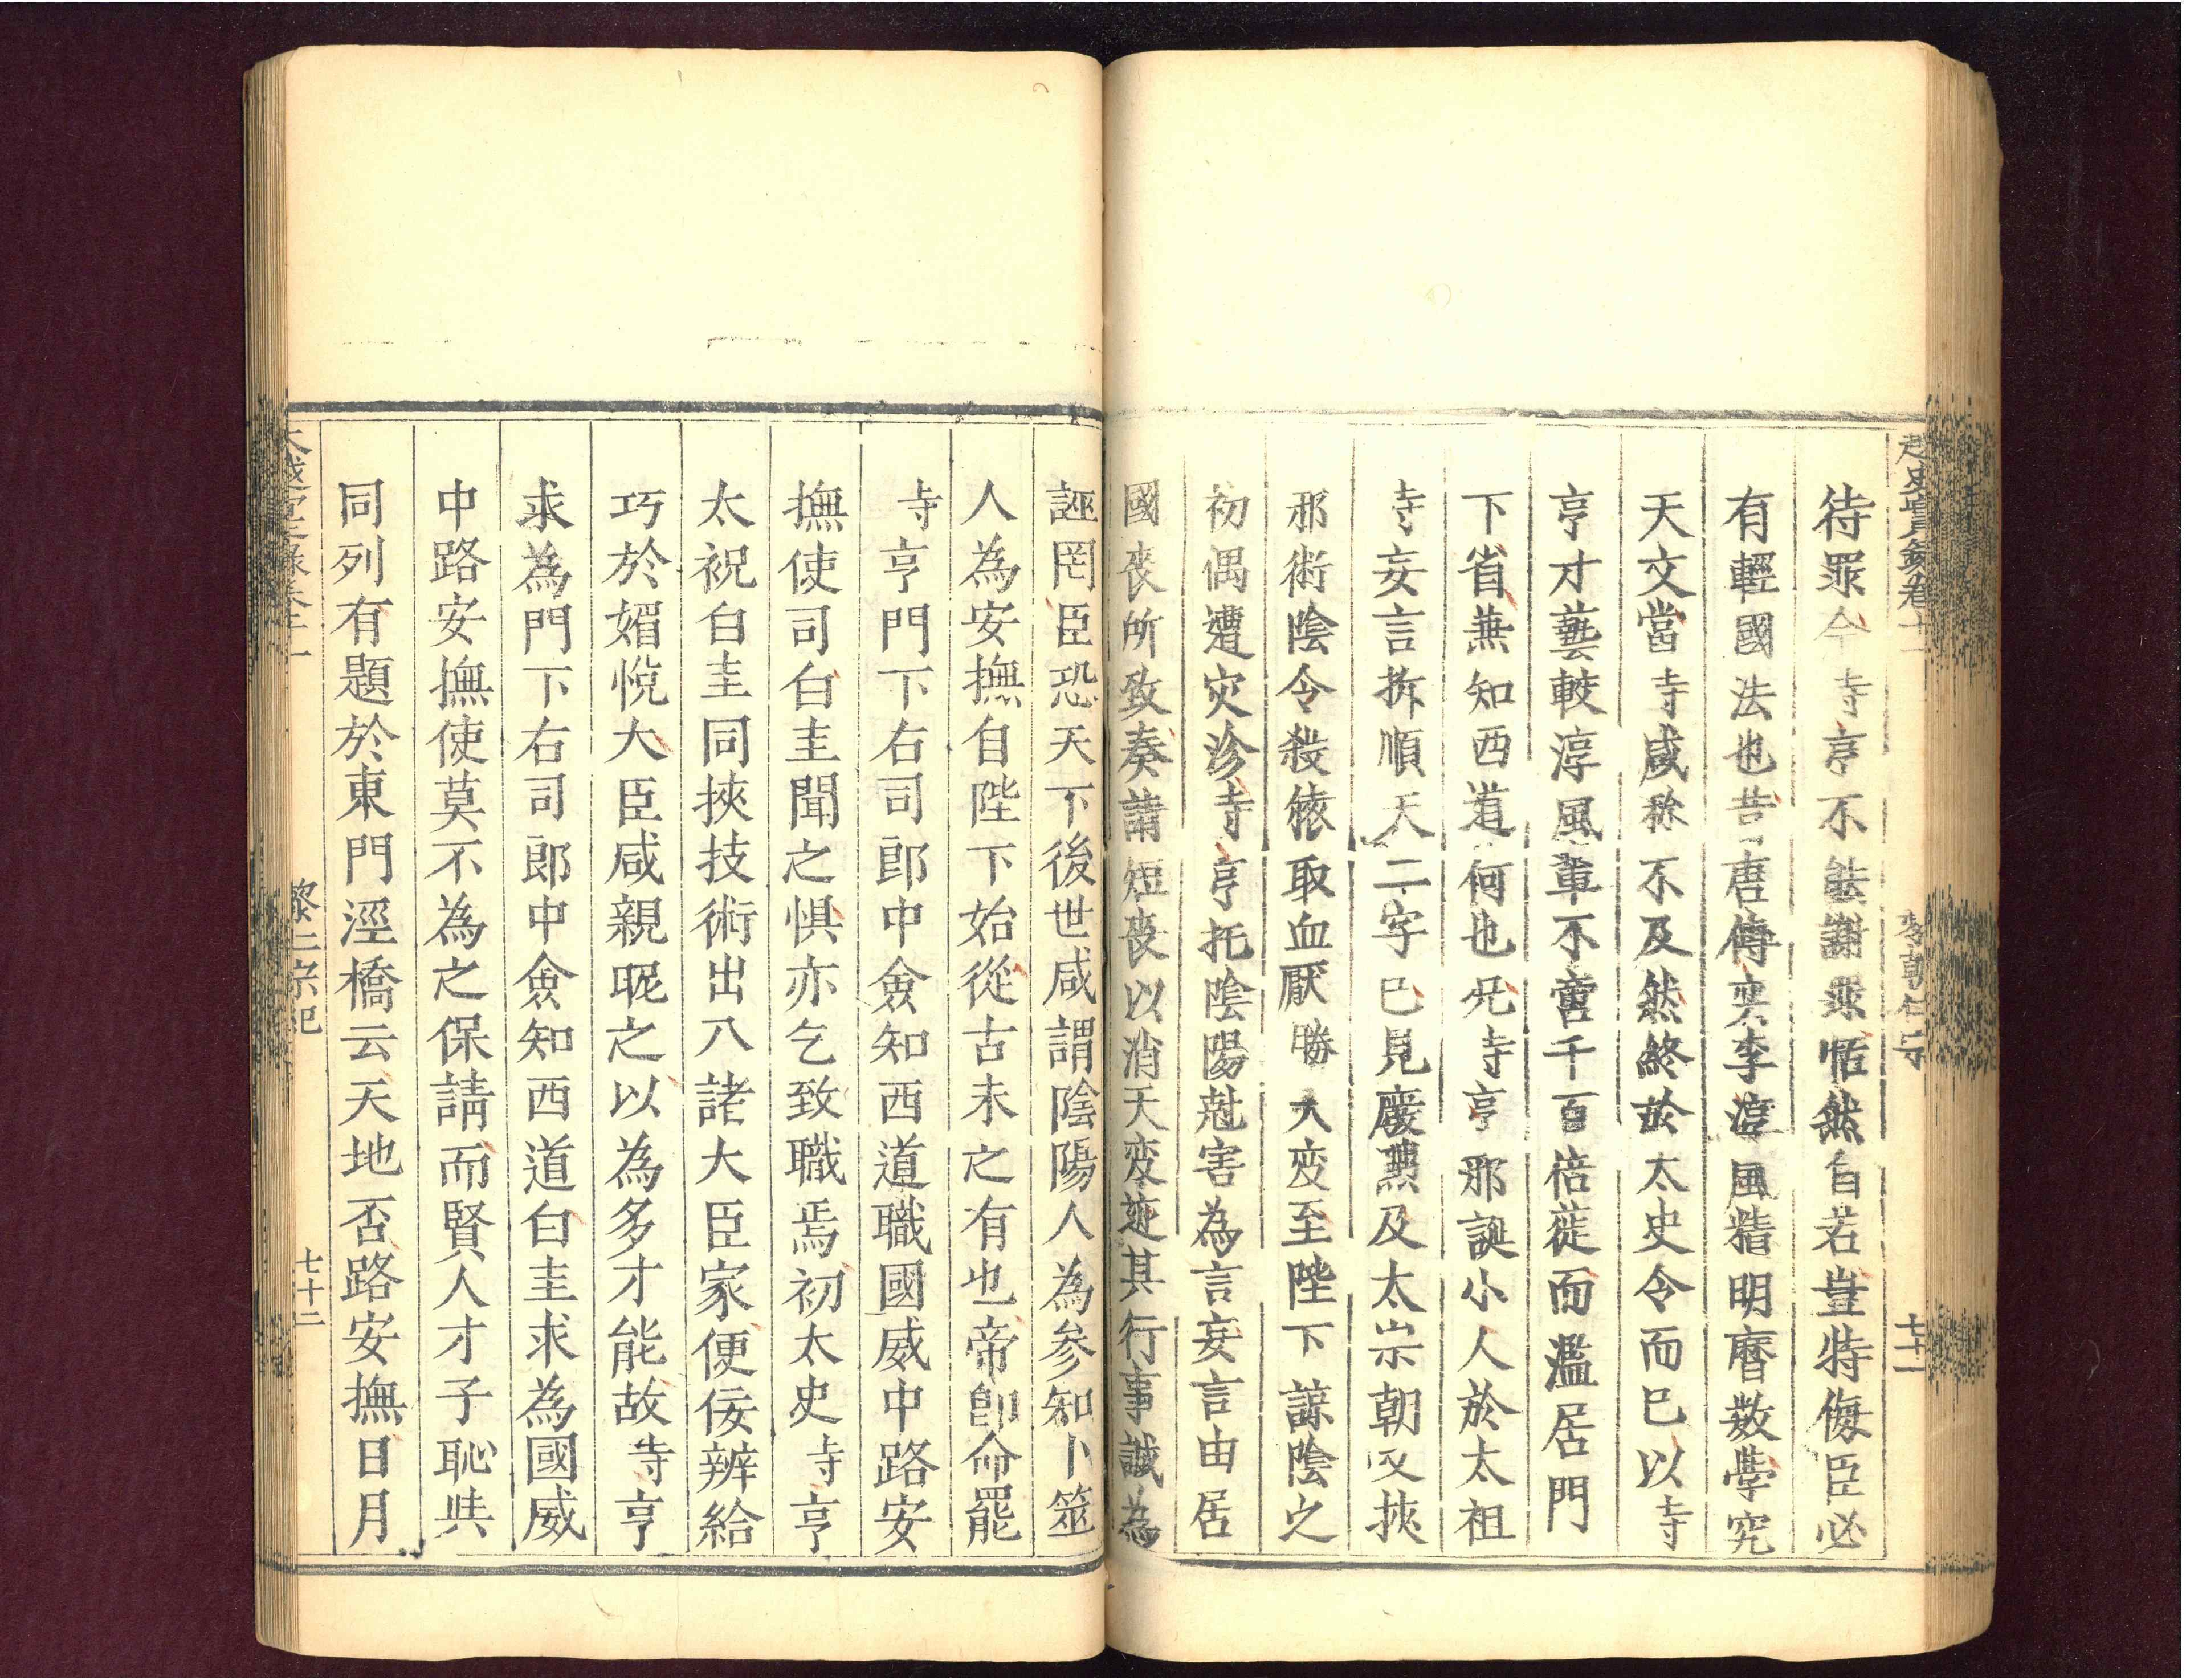 待罪今寺亨不能謝罪恬然自若豈特侮臣必
有輕國法也昔唐傳奕李淳風精明曆数學究
天文當寺咸称不及然終於太史令而已以寺
亨才藝較淳風軰不啻千百倍蓰而濫居門
下省兼知西道何也况寺亨邪誕小人於太祖
寺妄言拆順天二字已見廢黜及太宗朝又挾
邪術陰令殺猿取血厭勝天变至陛下諒陰之
初偶遭灾沴寺亨托陰陽尅害為言妄言由居
國丧所致奏請短丧以消天变迹其行事誠為
誣罔臣恐天下後世咸謂陰陽人為参知卜筮
人為安撫自陛下始從古未之有也帝即命罷
寺亨門下右司郎中僉知西道職國威中路安
撫使司白圭聞之惧亦乞致職焉初太史寺亨
太祝白圭同挾技術出入諸大臣家便佞辨給
巧於媚悅大臣咸親昵之以為多才能故寺亨
求為門下右司郎中僉知西道白圭求為國威
中路安撫使莫不為之保請而賢人才子恥與
同列有題於東門涇橋云天地否路安撫日月
大越史記實錄卷十一
黎仁宗紀
七十二